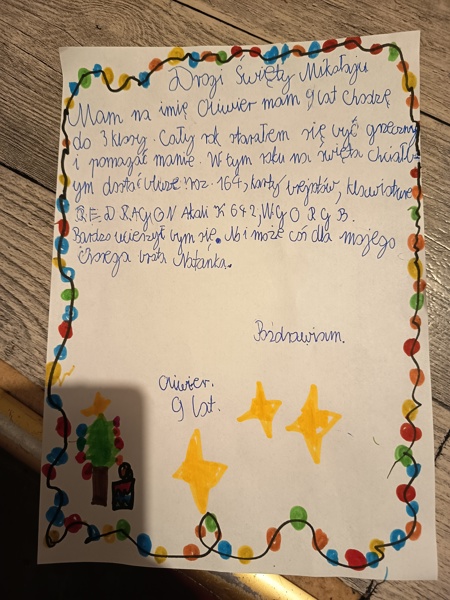 Drogi Święty Mikołaju
Mam na imię Oliwier mam 9 lat chodzę
do 3 klasy. Cały rok starałem się być grzeczny
i pomagać mamie. W tym roku na święta chciałb-
ym dostać bluze roz. 164, karty klawiature
RE-DRAGON K 642, W G O R G B.
Bardzo ucieszył bym się. No i może coś dla mojego
brata Natanka.
Pozdrawiam.
Oliwier.
9 lat.